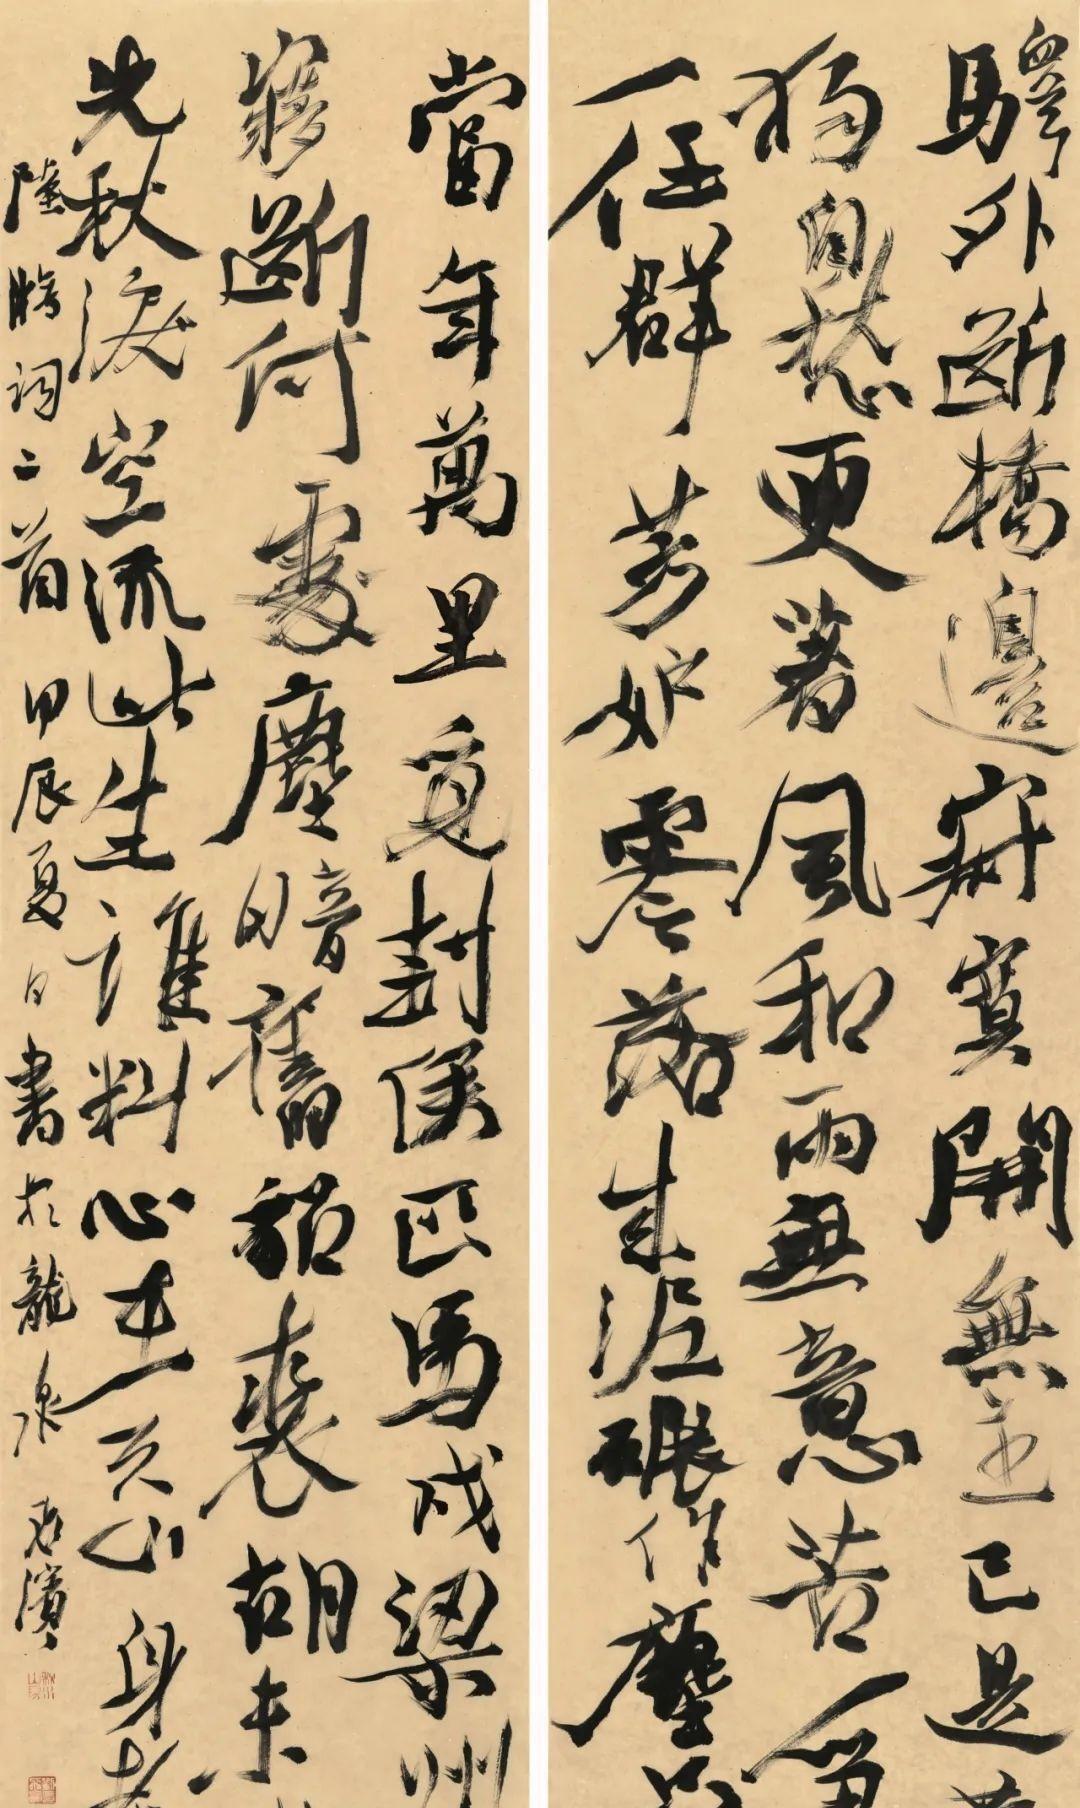 驛外斷橋邊寂寞開無主已是
獨自愁更著風和雨無意苦爭
一任群芳妒零落成泥碾作塵只
當年萬里覓封侯匹馬戍梁州
夢斷何處塵暗舊貂裘胡未
先秋淚空流此生誰料心在天山身老
陸游詞二首甲辰夏日書於龍泉濱